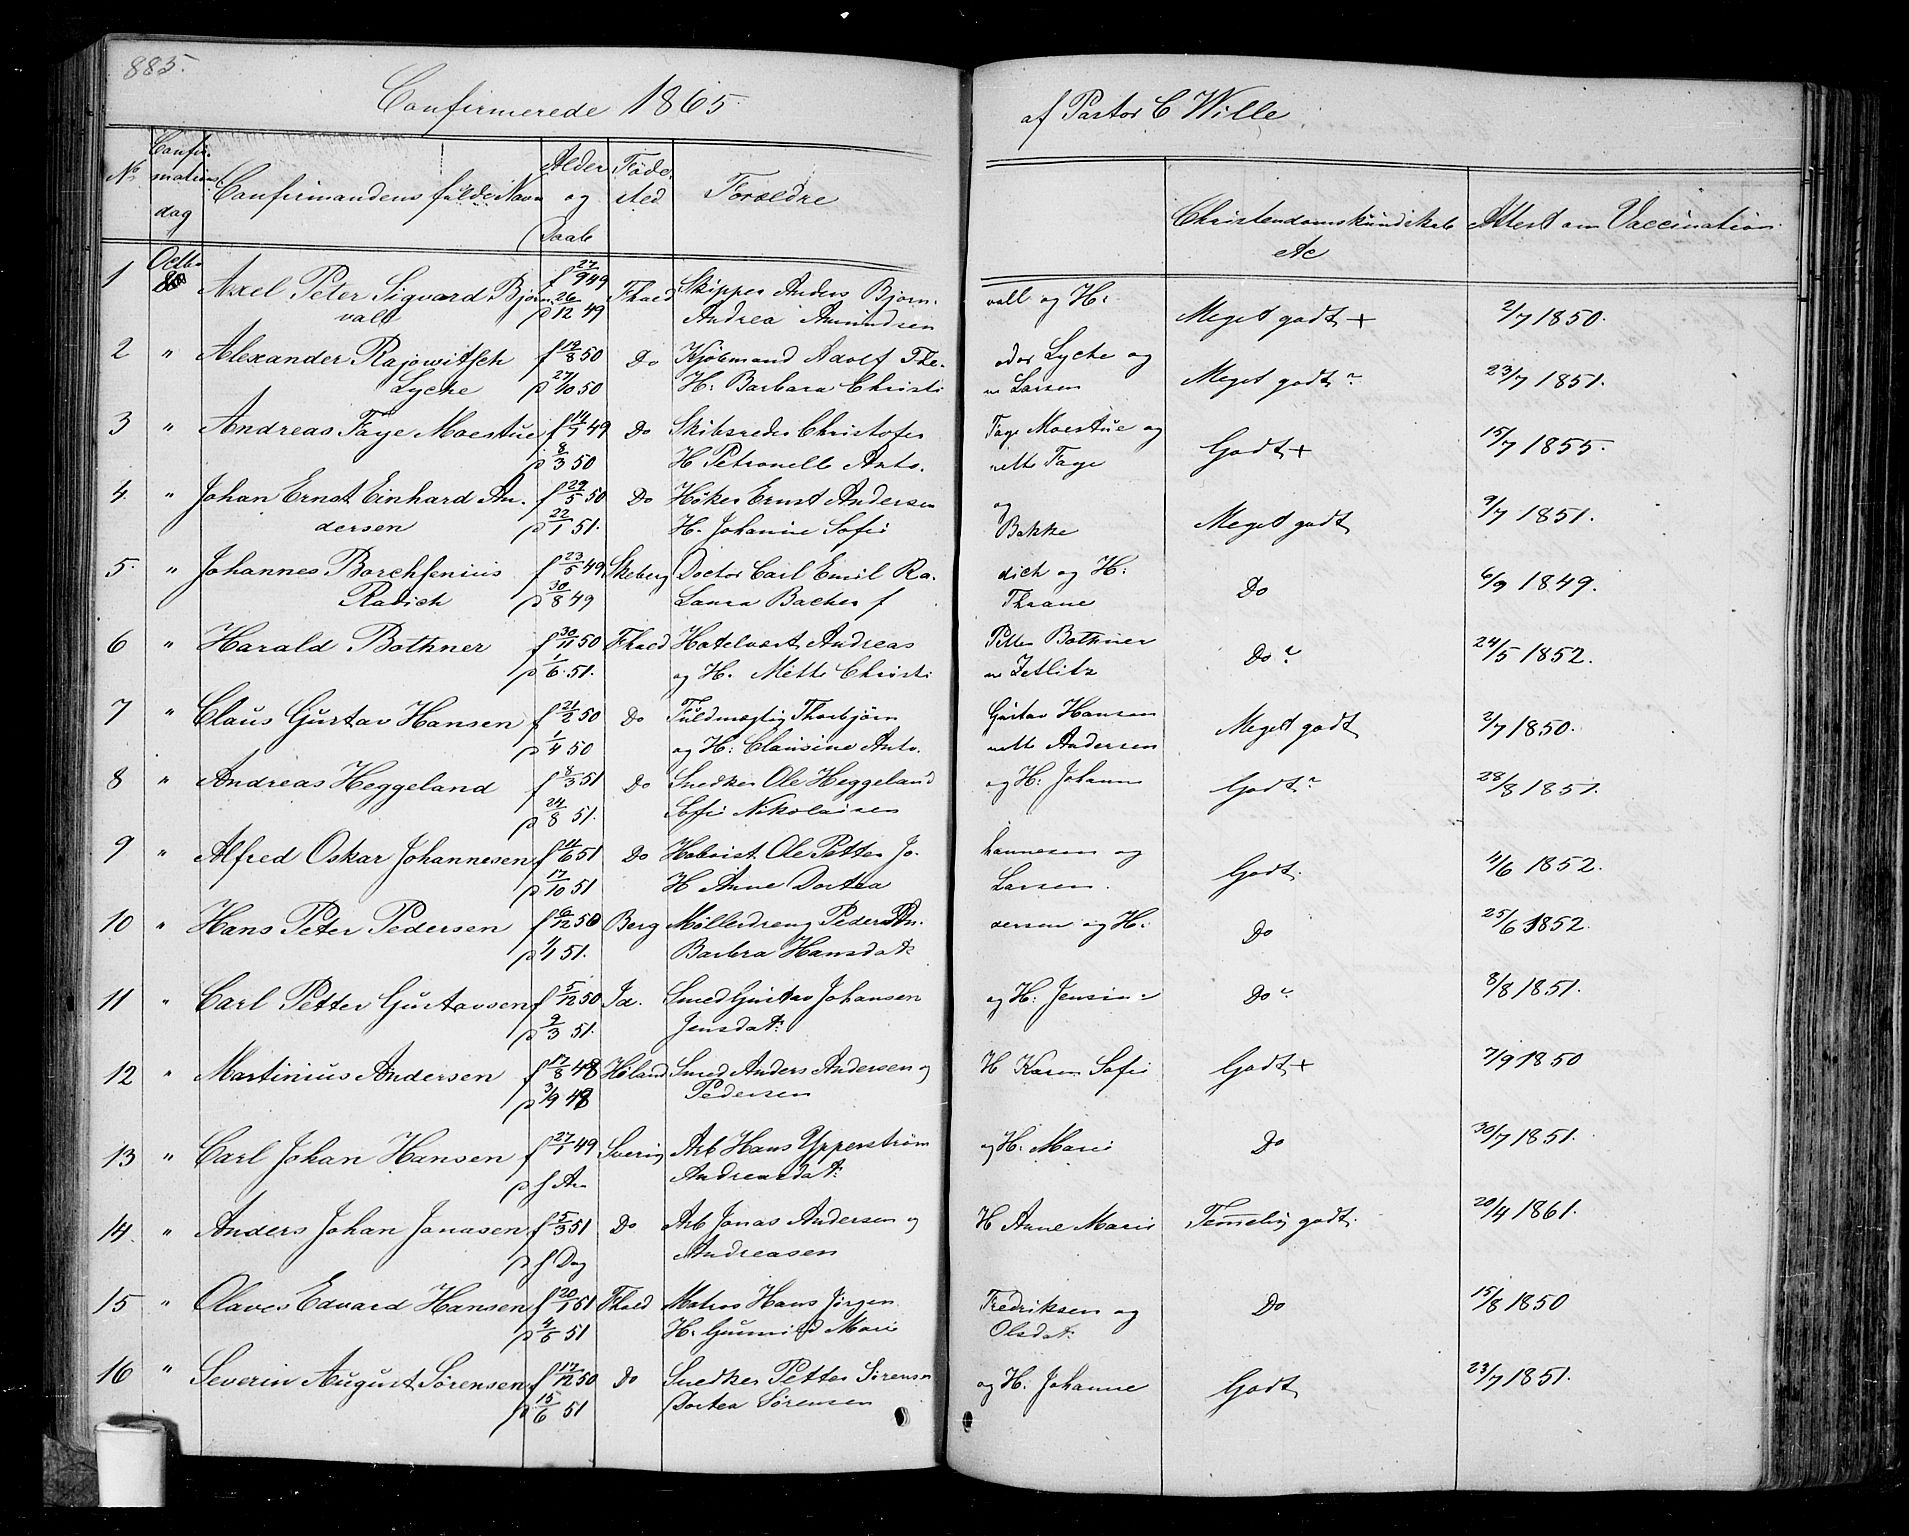 885.
Confirmerede 1865.
af Pastor C Wille
No
Confir-
mations
dag
Confirmandens fulde Navn
Alder
og
Daab
Føde-
sted
Forældre
Christendomskundskab
&c
Attest om Vaccination
1 Octbr Axel Peter Sigvard Bjørn- f 27/9 49 Fhald Skipper Anders Bjørn- vall og H: Meget godt + 2/7 1850.
vall p 26/12 49 Andrea Amundsen
2 " Alexander Rajowitsch f 19/8 50 Do Kjøbmand Adolf The- odor Lyche og Meget godt ~ 23/7 1851.
Lyche p 27/10 50 H: Barbara Christi ne Larsen
3 " Andreas Faye Moestue f 14/7 49 Do Skibsreder Christofer Faye Moestue og Godt + 15/7 1855.
p 8/3 50 H Petronelle Anto- nette Faye
4. " Johan Ernst Einhard An- f 29/5 50 Do Høker Ernst Andersen og Meget godt 9/7 1851.
dersen p 22/1 51. H. Johanne Sofie Bakke
5. " Johannes Borchsenius f 23/5 49 Skeberg Doctor Carl Emil Ra- dich og H: Do 6/9 1849.
Radich p 30/8 49 Laura Bacher f Thrane
6 " Harald Bothner f 30/11 50 Fhald Hotelvært Andreas Petter Bothner Do ~ 24/5 1852.
p 1/6. 51. og H. Mette Christi ne Zetlitz
7 " Claus Gustav Hansen f 21/2 50 Do Fuldmægtig Thorbjørn Gustav Hansen Meget godt 2/7 1850.
p 1/4 50 og H: Clausine Anto- nette Andersen
8 " Andreas Heggeland f 8/3 51 Do Snedker Ole Heggeland og H: Johanne Godt ~ 28/8 1851.
p 24/8 51. Sofie Nikolaisen
9 " Alfred Oskar Johannesen f 14/6 51 Do Ole Petter Jo- hannesen og Godt. 4/6 1852.
p 17/10 51 H Anne Dortea Larsen.
10 " Hans Peter Pedersen f 6/12 50 Berg Mølledreng Peder Pe- dersen og H: Do 25/6 1852.
p 4/4 51. Barbra Hansdat:
11 " Carl Petter Gustavsen f 5/12 50 Id. Smed Gustav Johansen og H: Jensine Do ~ 8/8 1851.
p 9/3 51. Jensdat:
12 " Martinius Andersen f 17/8 48 Høland Smed Anders Andersen og H Karen Sofie Godt + 7/9 1850
p 3/9 48 Pedersen
13 " Carl Johan Hansen f 27/7 49 Sverig Arb Hans Ypperstrøm og H: Marie Do 30/7 1851.
p s Aar Andreasdat:
14. " Anders Johan Jonasen f 5/3 51 Do Arb Jonas Andersen og H Anne Marie Temmelig godt. 20/4 1861.
p s Dag Andreasen
15 " Olaves Edvard Hansen f 20/1 51 Fhald Matros Hans Jørgen Fredriksen og Do 15/8 1850
p 4/5 51 H. Gunnild Marie Olsdat:
16 " Severin August Sørensen f 17/12 50 Do Snedker Petter Sørensen og H: Johanne Godt 23/7 1851.
p. 15/6 51 Dortea Sørensen